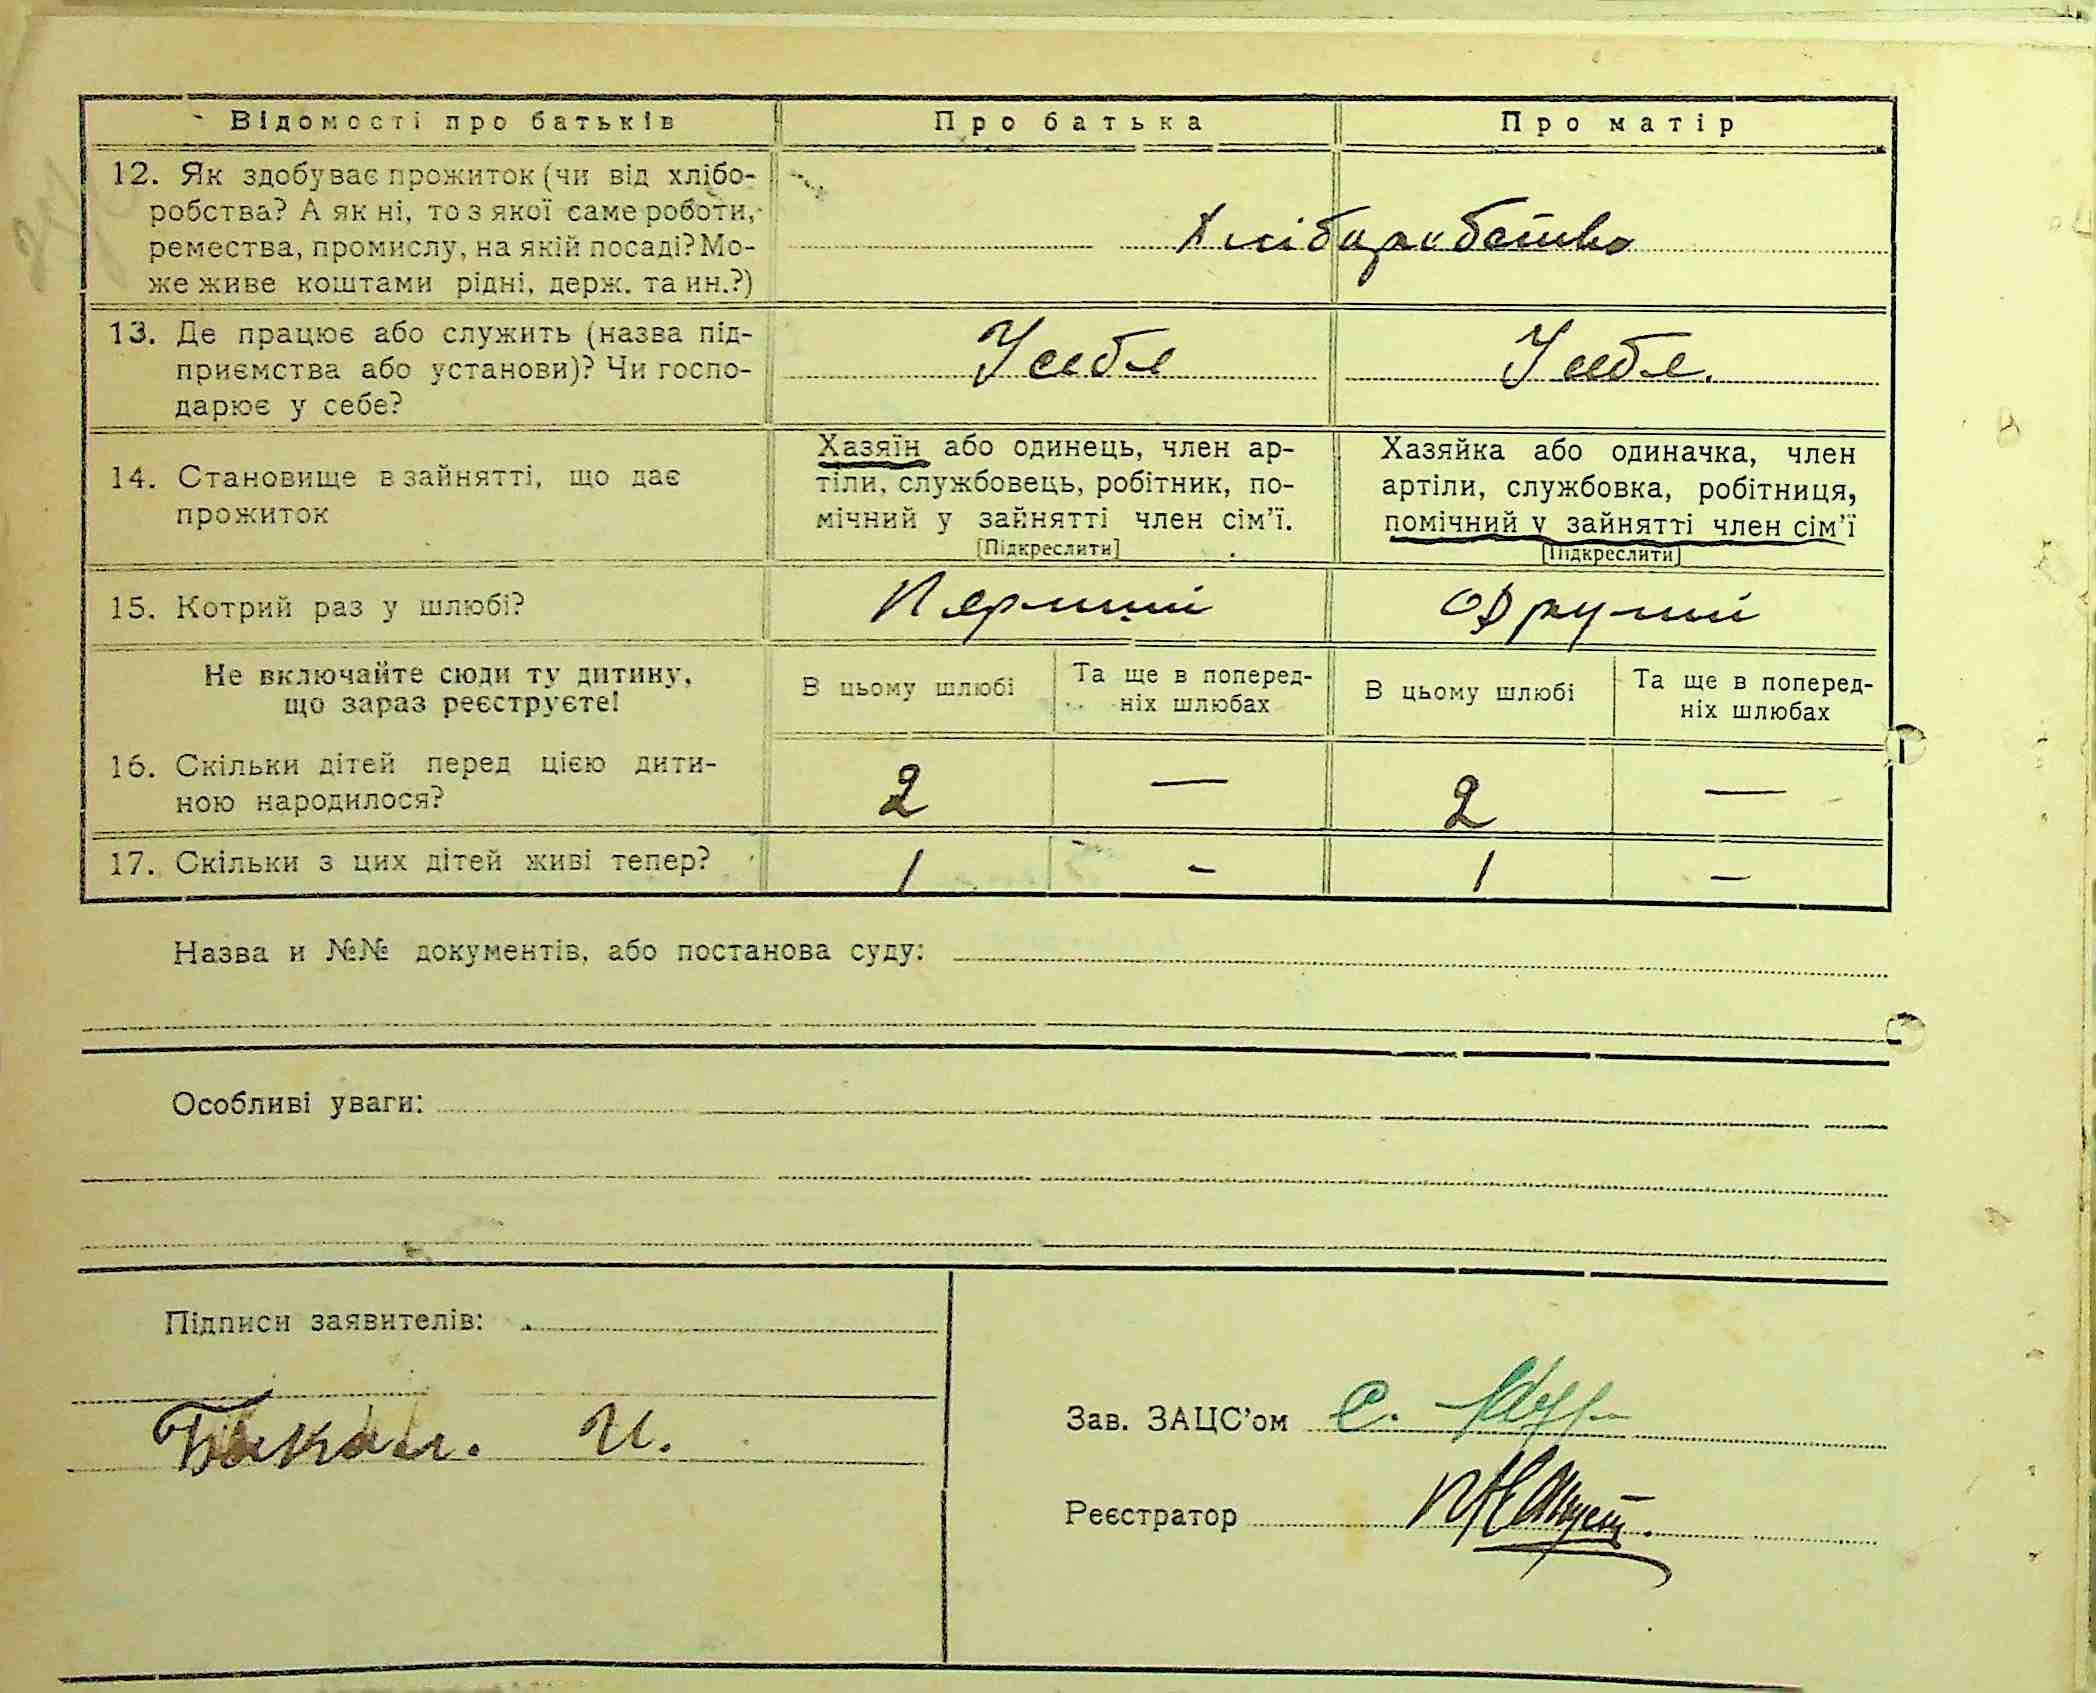 Відомості про батьків Про батька Про матір
12. Як здобуває прожиток (чи від хлібо-
робства? А як ні, то з якої саме роботи,
ремества, промислу, на якій посаді? Мо-
же живе коштами рідні, держ. та ин.?)
Хліборобство
13. Де працює або служить (назва під-
приємства або установи)? Чи госпо-
дарює у себе?
У себе У себе.
14. Становище в зайнятті, що дає
прожиток
Хазяїн або одинець, член ар-
тіли, службовець, робітник, по-
мічний у зайнятті член сім'ї.
[Підкреслити]
Хазяйка або одиначка, член
артіли, службовка, робітниця,
помічний у зайнятті член сім'ї
[Підкреслити]
15. Котрий раз у шлюбі? Перший Другий
Не включайте сюди ту дитину,
що зараз реєструєте!
В цьому шлюбі
Та ще в поперед-
ніх шлюбах
В цьому шлюбі
Та ще в поперед-
ніх шлюбах
16. Скільки дітей перед цією дити-
ною народилося?
2 — 2 —
17. Скільки з цих дітей живі тепер? 1 - 1 –
Назва и №№ документів, або постанова суду:
Особливі уваги:
Підписи заявителів:
И.
Зав. ЗАЦС'ом С.
Реєстратор